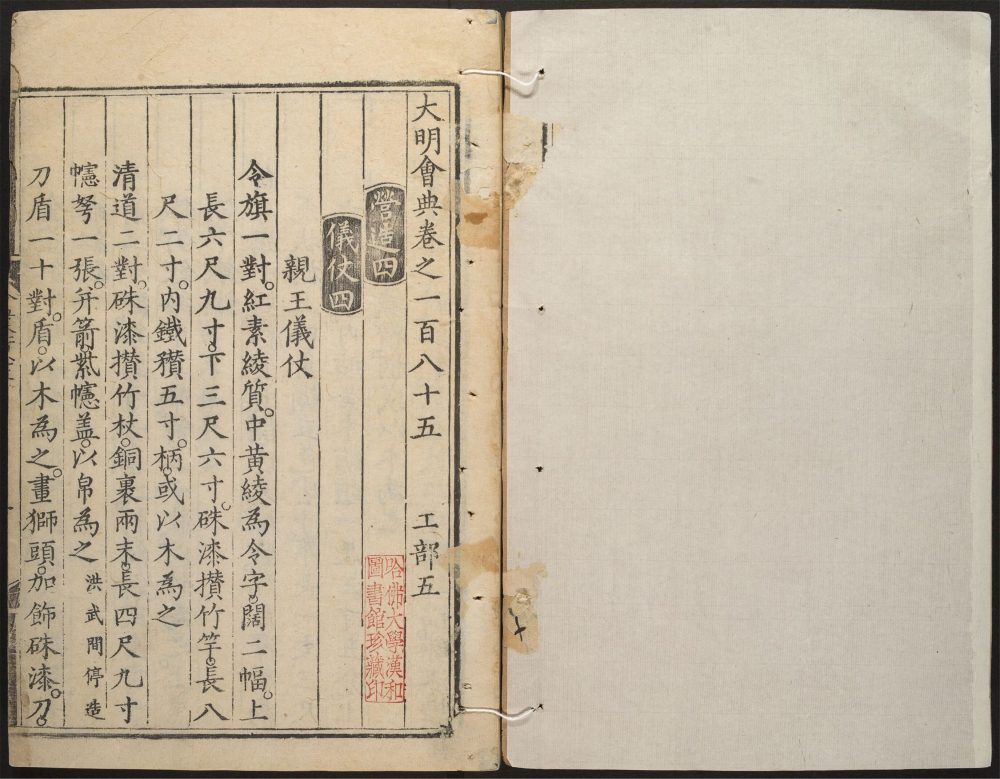 大明會典卷之一百八十五 工部五
營造四
儀仗四
親王儀仗
令旗一對。紅素綾質。中黃綾為令字。闊二幅。上
長六尺九寸。下三尺六寸。硃漆攢竹竿。長八
尺二寸。內鐵㩥五寸。柄。或以木為之
清道二對。硃漆攢竹杖。銅裹兩末。長四尺九寸
幰弩一張。幷箭。紫幰蓋。以帛為之 洪武間停造
刀盾一十對。盾。以木為之。畫獅頭。加飾硃漆。刀。
哈佛大學漢和
圖書館珍藏印